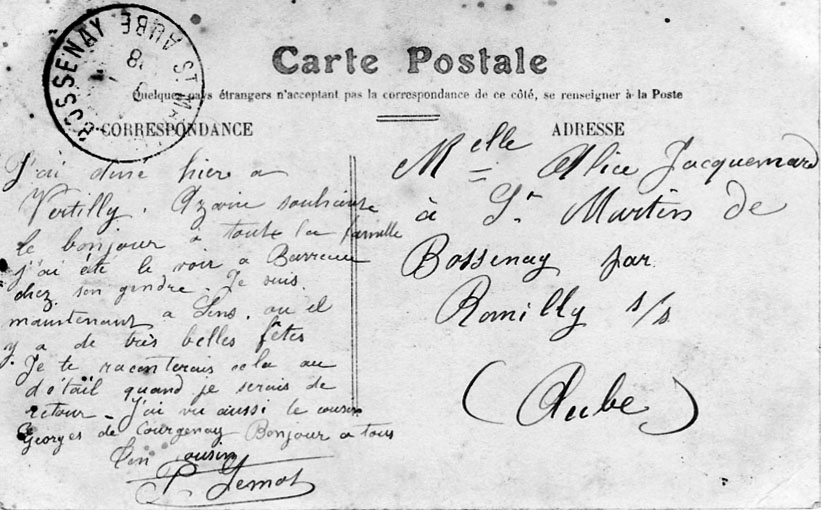 Carte Postale
Quelques pays étrangers n'acceptant pas la correspondance de ce côté, se renseigner à la Poste
CORRESPONDANCE
J'ai diné hier a
Vertilly. Azarie souhaite
le bonjour à toute la famille
j'ai été le voir a
chez son gendre. Je suis
maintenant a Sens, ou il
y a de très belles fêtes
Je te raconterais cela au
détail quand je serais de
retour - J'ai vu aussi le cousin
Georges de Courgenay Bonjour a tous
Ton cousin
P. Lemot
ADRESSE
Melle Alice Jacquemard
à St Martin de
Bossenay par
Romilly s/s
(Aube)
ST M BOSSENAY AUBE
8